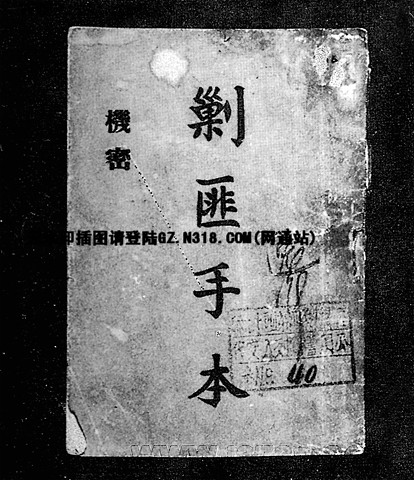 機密
剿匪手本
印插图请登陆GZ.N318.COM(网通站)
No 40